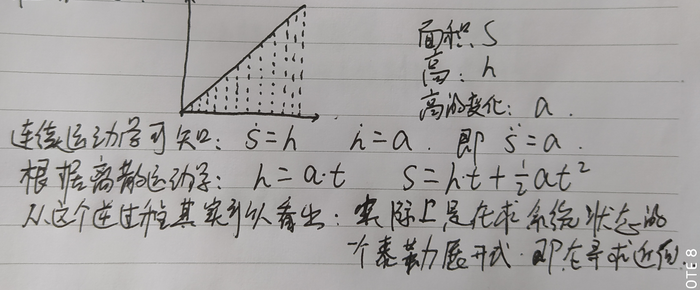 面积 S
高: h
高的变化: a.
连续运动学可知: ṡ=h ḣ=a. 即 s̈=a.
根据离散运动学: h=a·t S=h·t+½at²
从这个逆过程其实可以看出: 实际上是在求系统状态的
一个泰勒展开式. 即在寻求近似.
OTE 8